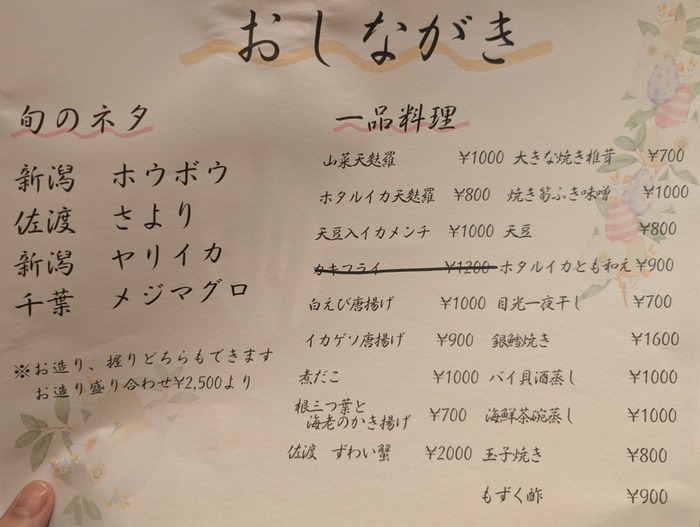 おしながき
旬のネタ
新潟 ホウボウ
佐渡 さより
新潟 ヤリイカ
千葉 メジマグロ
※お造り、握りどちらもできます
お造り盛り合わせ¥2,500より
一品料理
山菜天麩羅 ¥1000
ホタルイカ天麩羅 ¥800
天豆入イカメンチ ¥1000
カキフライ ¥1200
白えび唐揚げ ¥1000
イカゲソ唐揚げ ¥900
煮だこ ¥1000
根三つ葉と
海老のかき揚げ ¥700
佐渡 ずわい蟹 ¥2000
大きな焼き椎茸 ¥700
焼き筍ふき味噌 ¥1000
天豆 ¥800
ホタルイカとも和え ¥900
目光一夜干し ¥700
銀鱈焼き ¥1600
バイ貝酒蒸し ¥1000
海鮮茶碗蒸し ¥1000
玉子焼き ¥800
もずく酢 ¥900